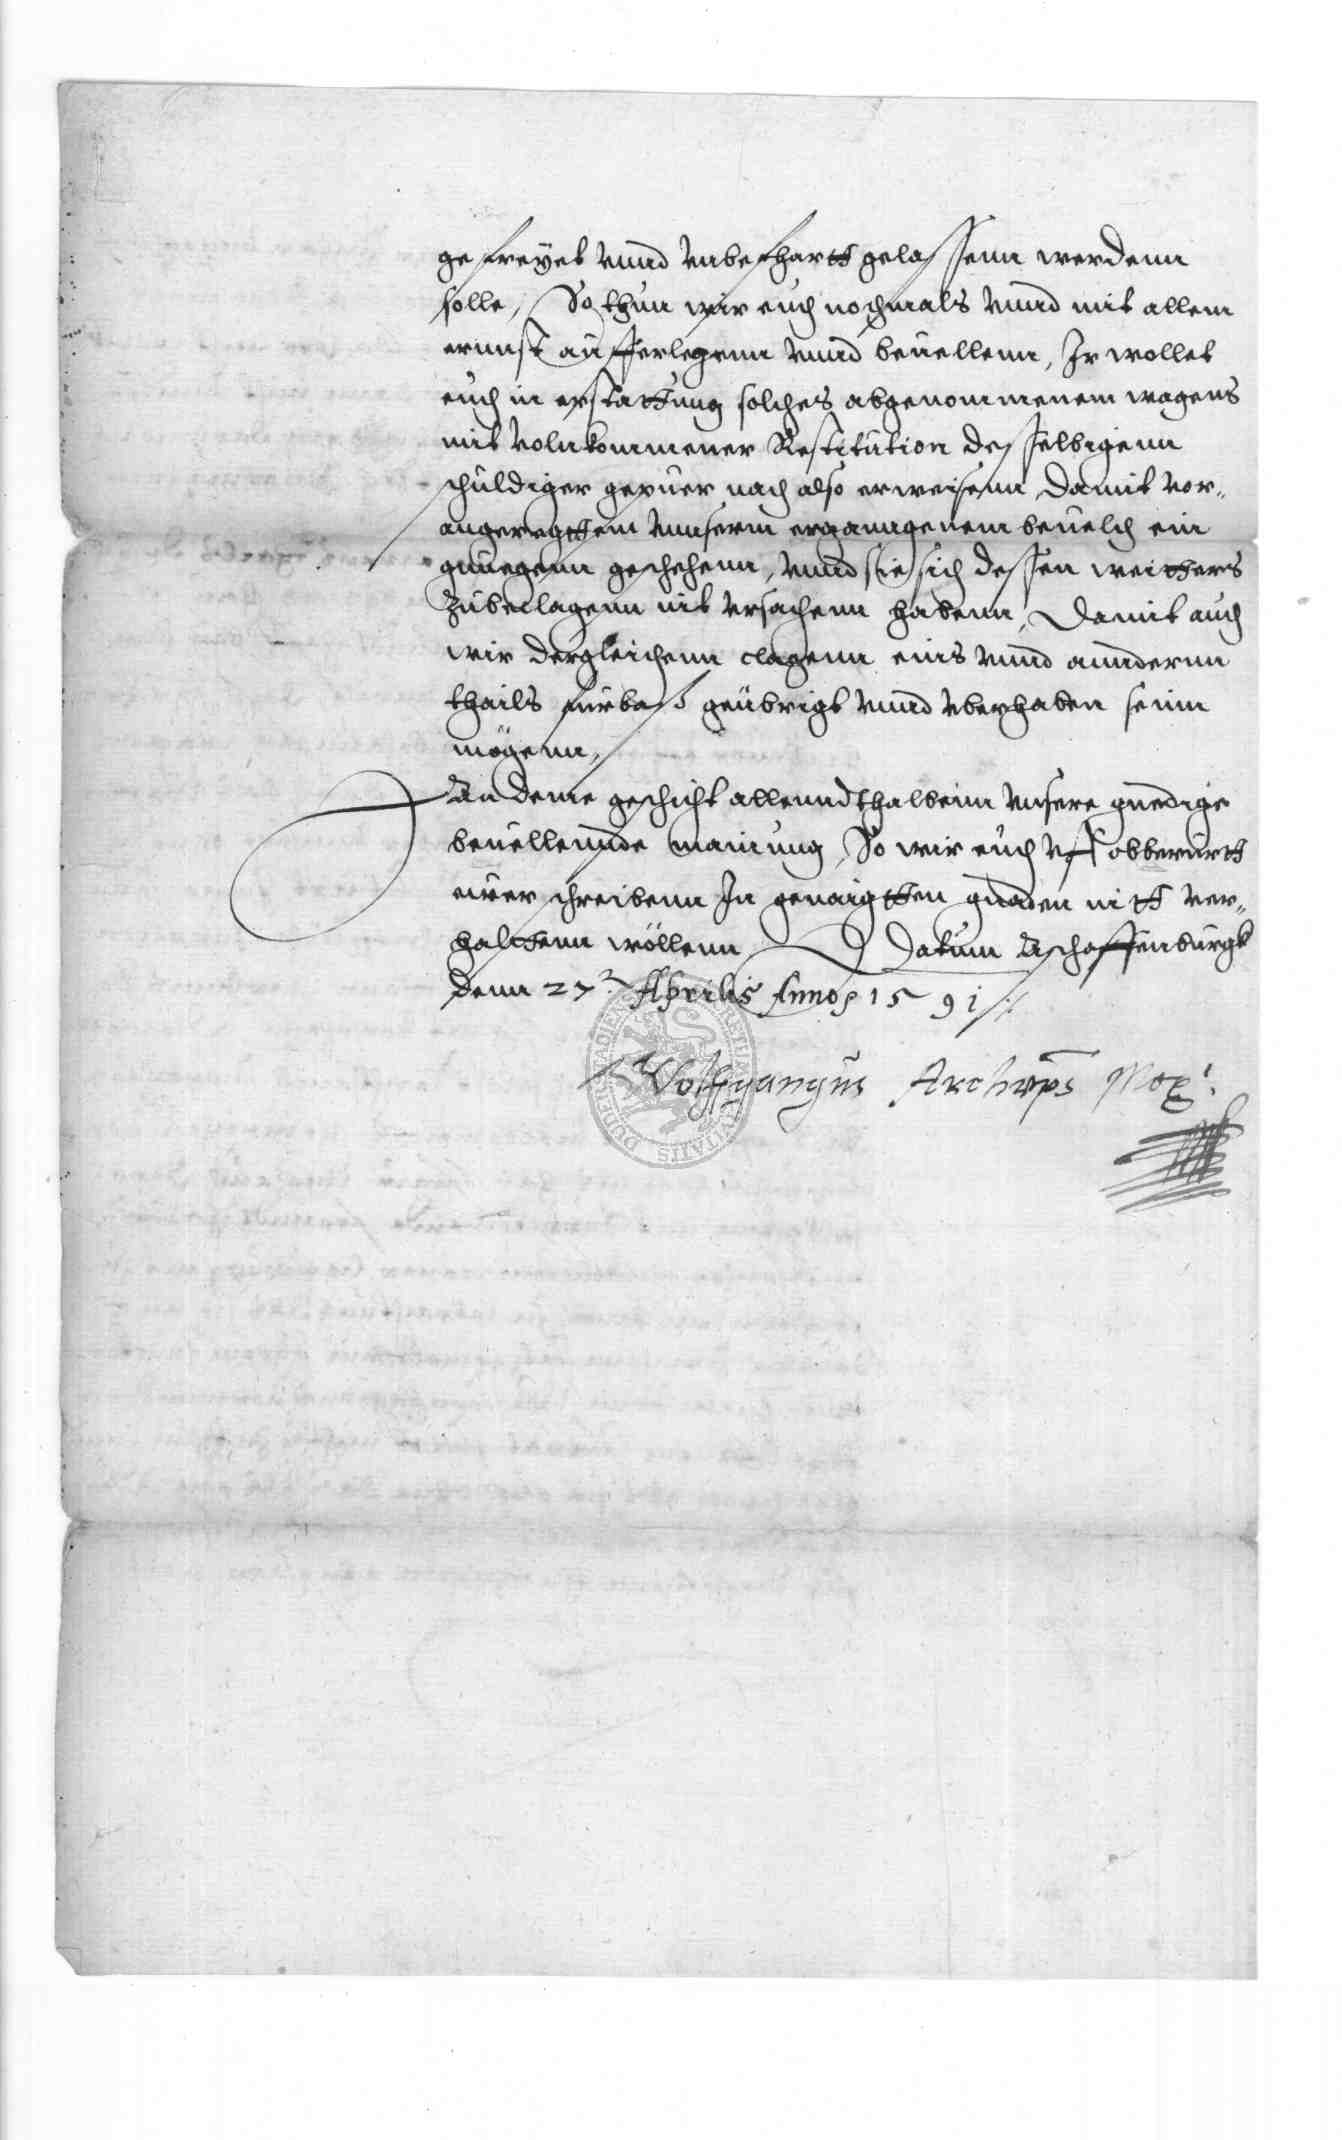 gefreyet vnnd vnbefhartt gelassenn werdenn
solle, So thun wir euch nochmals vnnd mit allem
ernnst aufferlegenn vnnd beuellenn, Ir wollet
euch in erstattung solches abgenommenem wagens
mit volnkommener Restitution desselbigenn
schuldiger gepuer nach also erweisenn, damit vor„
angeregttem vnnserm erganngenem beuelch ein
gnuegenn geschehenn, vnnd sie sich dessen weitthers
zubeclagenn nit vrsachenn habenn, Damit auch
wir dergleichenn clagenn eins vnnd anndernn
thails fürbaß geübrigt vnnd vberhaben seinn
mögenn,
An deme geschicht allenndthalbenn vnsere gnedige
beuellennde mainung, So wir euch vff obberürtt
euer schreibenn In genaigtten gnaden nitt ver„
halttenn wöllenn Datum Aschaffenburgk
denn 27 Aprilis Anno 1591
Wolffgangus Archieps Mog: